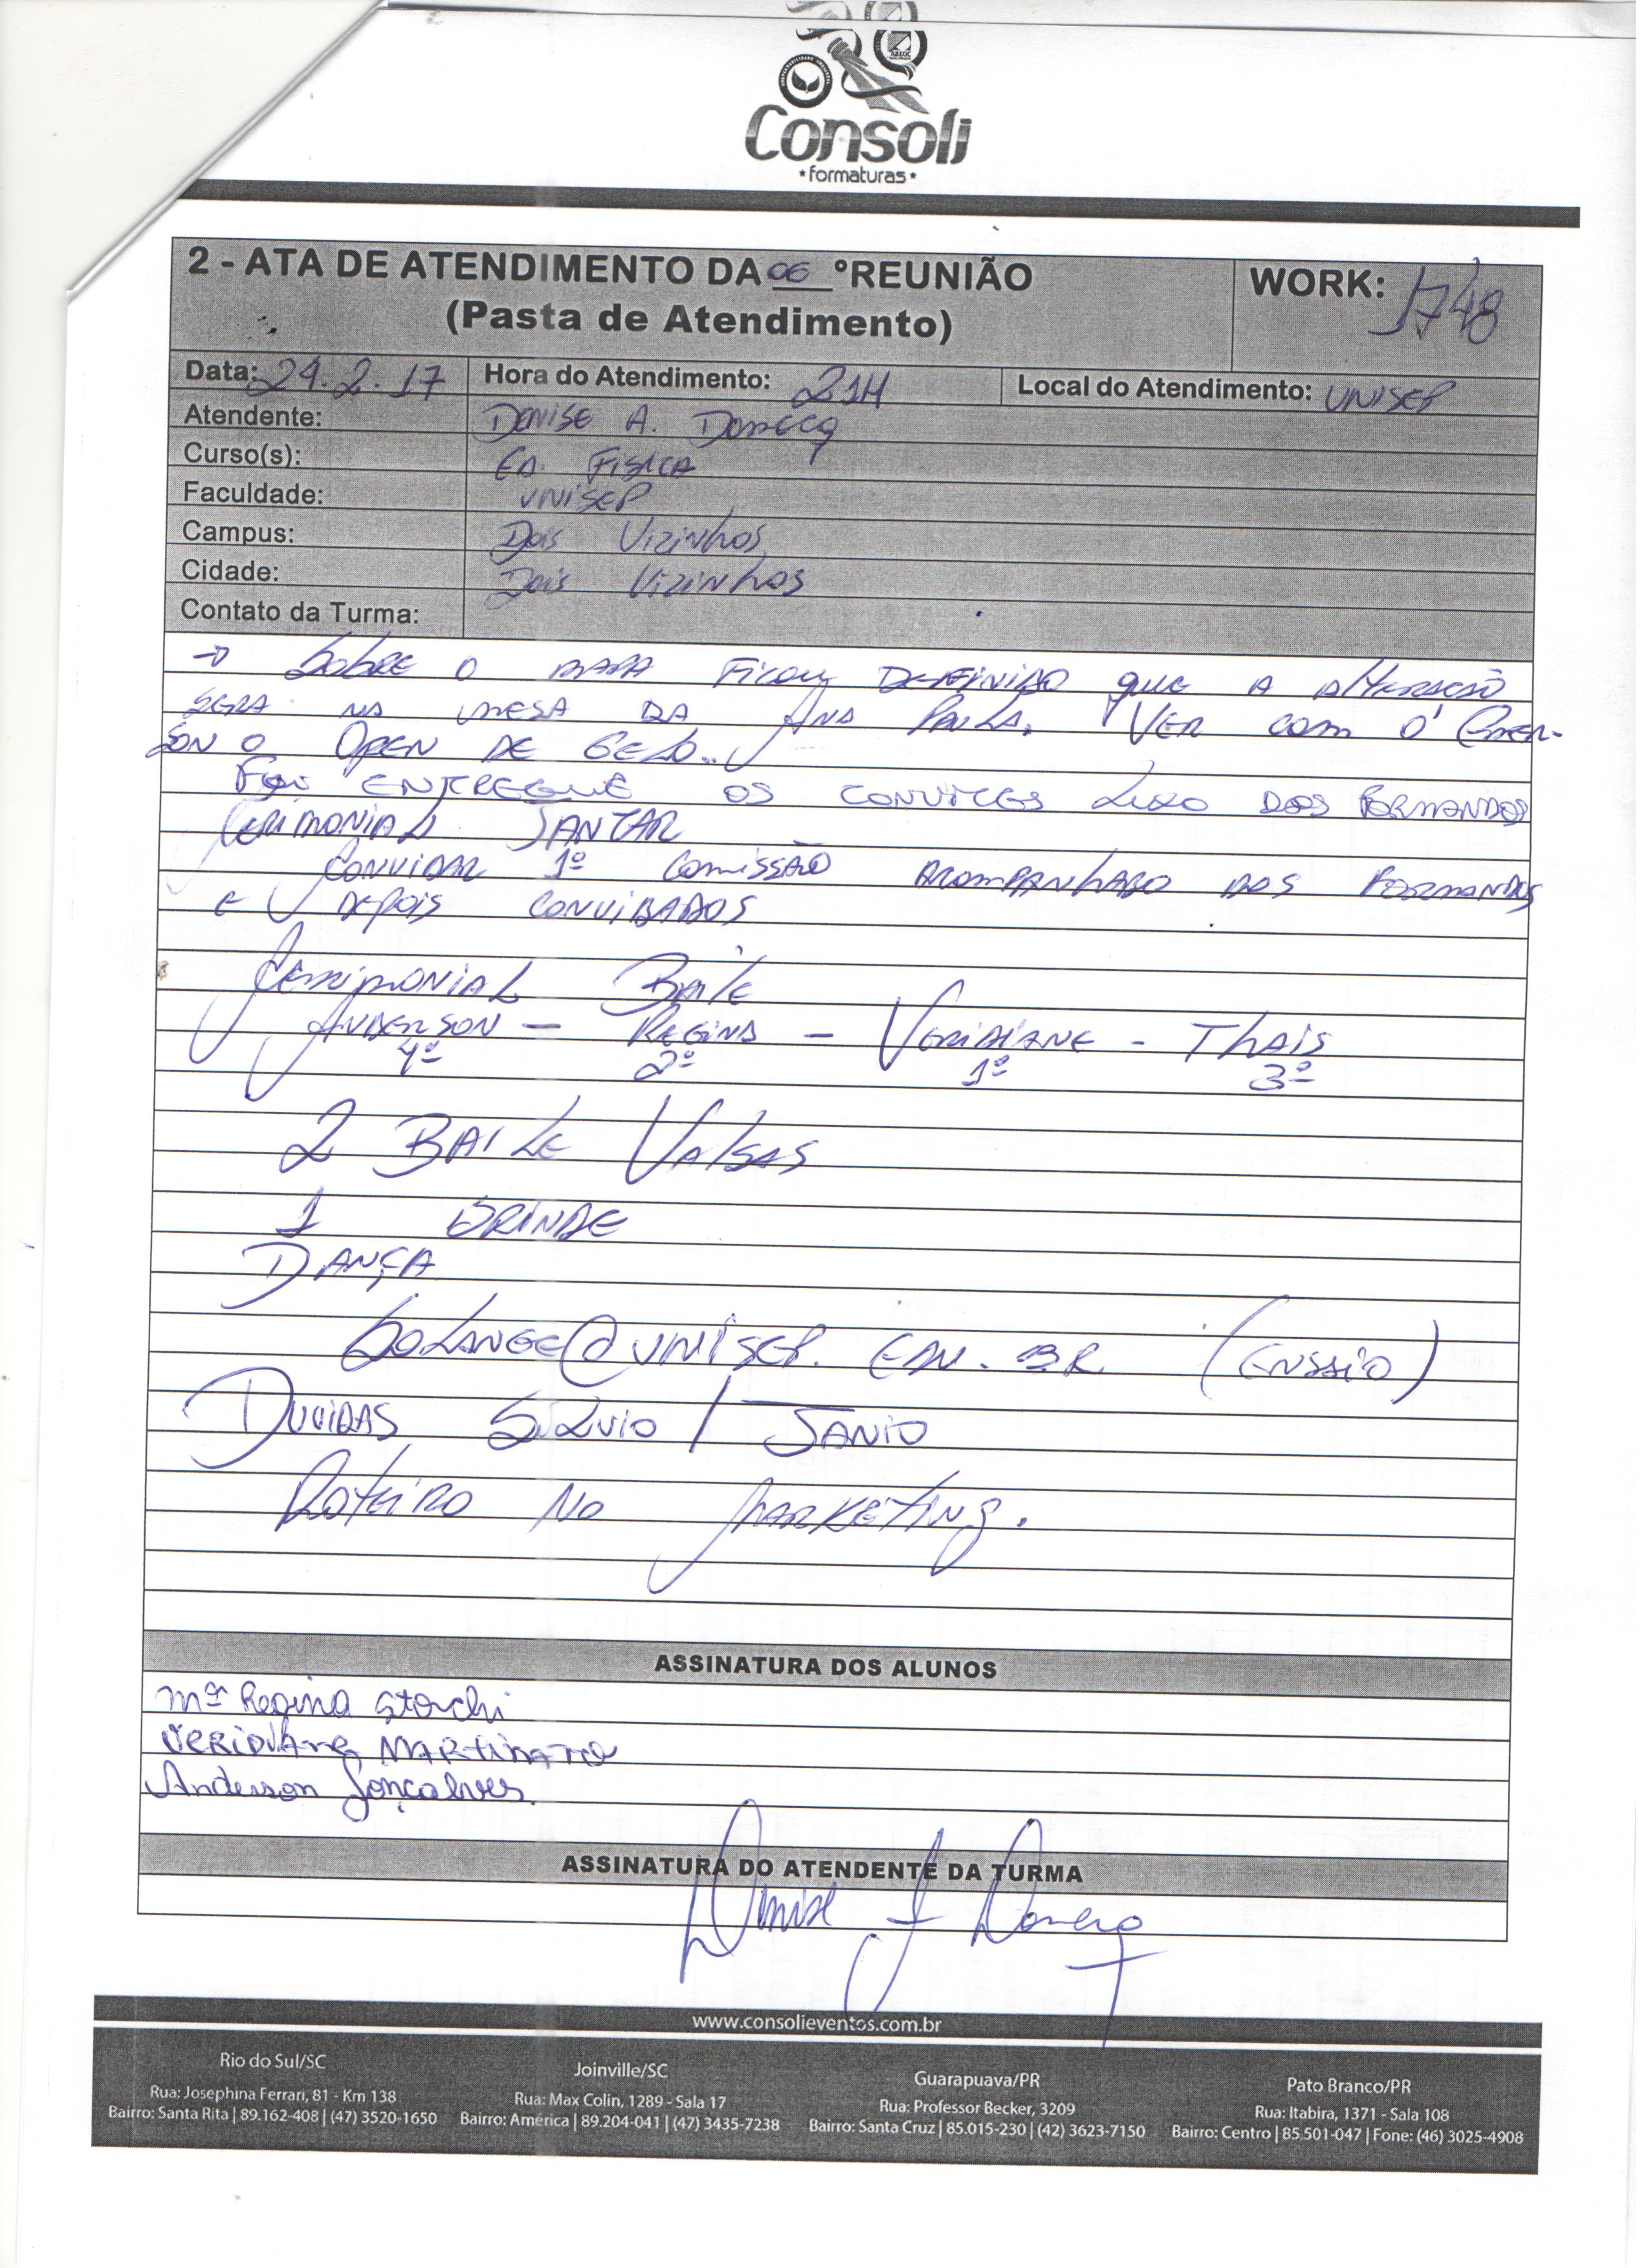 Consoli
*formaturas*
2 - ATA DE ATENDIMENTO DA 06 ºREUNIÃO
(Pasta de Atendimento)
WORK: 1748
Data: 24.2.17 Hora do Atendimento: 21H Local do Atendimento: UNISEP
Atendente: DENISE A.
Curso(s): ED. FISICA
Faculdade: UNISEP
Campus: Dois Vizinhos
Cidade: Dois Vizinhos
Contato da Turma:
→ Sobre o mapa Ficou DEFINIDO que A Alteração
SERA NA MESA DA ANA PAULA. VER com O Emer-
SON O OPEN DE GELO..
Foi ENTREGUE OS CONVITES LUXO DOS FORMANDOS
CERIMONIAL JANTAR
CONVIDAR 1º Comissão Acompanhado dos FORMANDOS
E DEPOIS CONVIDADOS
Cerimonial Baile
ANDERSON - REGINA - VERIDIANE - THAIS
4º 2º 1º 3º
2 BAILE Valsas
1 BRINDE
DANÇA
SOLANGE@UNISEP.EDU.BR (ENSAIO)
DUVIDAS SILVIO / JANIO
Roteiro No MARKETING.
ASSINATURA DOS ALUNOS
Mª Regina Storchi
VERIDIANE MARTINATTO
Anderson Gonçalves.
ASSINATURA DO ATENDENTE DA TURMA
Denise A
www.consolieventos.com.br
Rio do Sul/SC
Rua: Josephina Ferrari, 81 - Km 138
Bairro: Santa Rita | 89.162-408 | (47) 3520-1650
Joinville/SC
Rua: Max Colin, 1289 - Sala 17
Bairro: América | 89.204-041 | (47) 3435-7238
Guarapuava/PR
Rua: Professor Becker, 3209
Bairro: Santa Cruz | 85.015-230 | (42) 3623-7150
Pato Branco/PR
Rua: Itabira, 1371 - Sala 108
Bairro: Centro | 85.501-047 | Fone: (46) 3025-4908